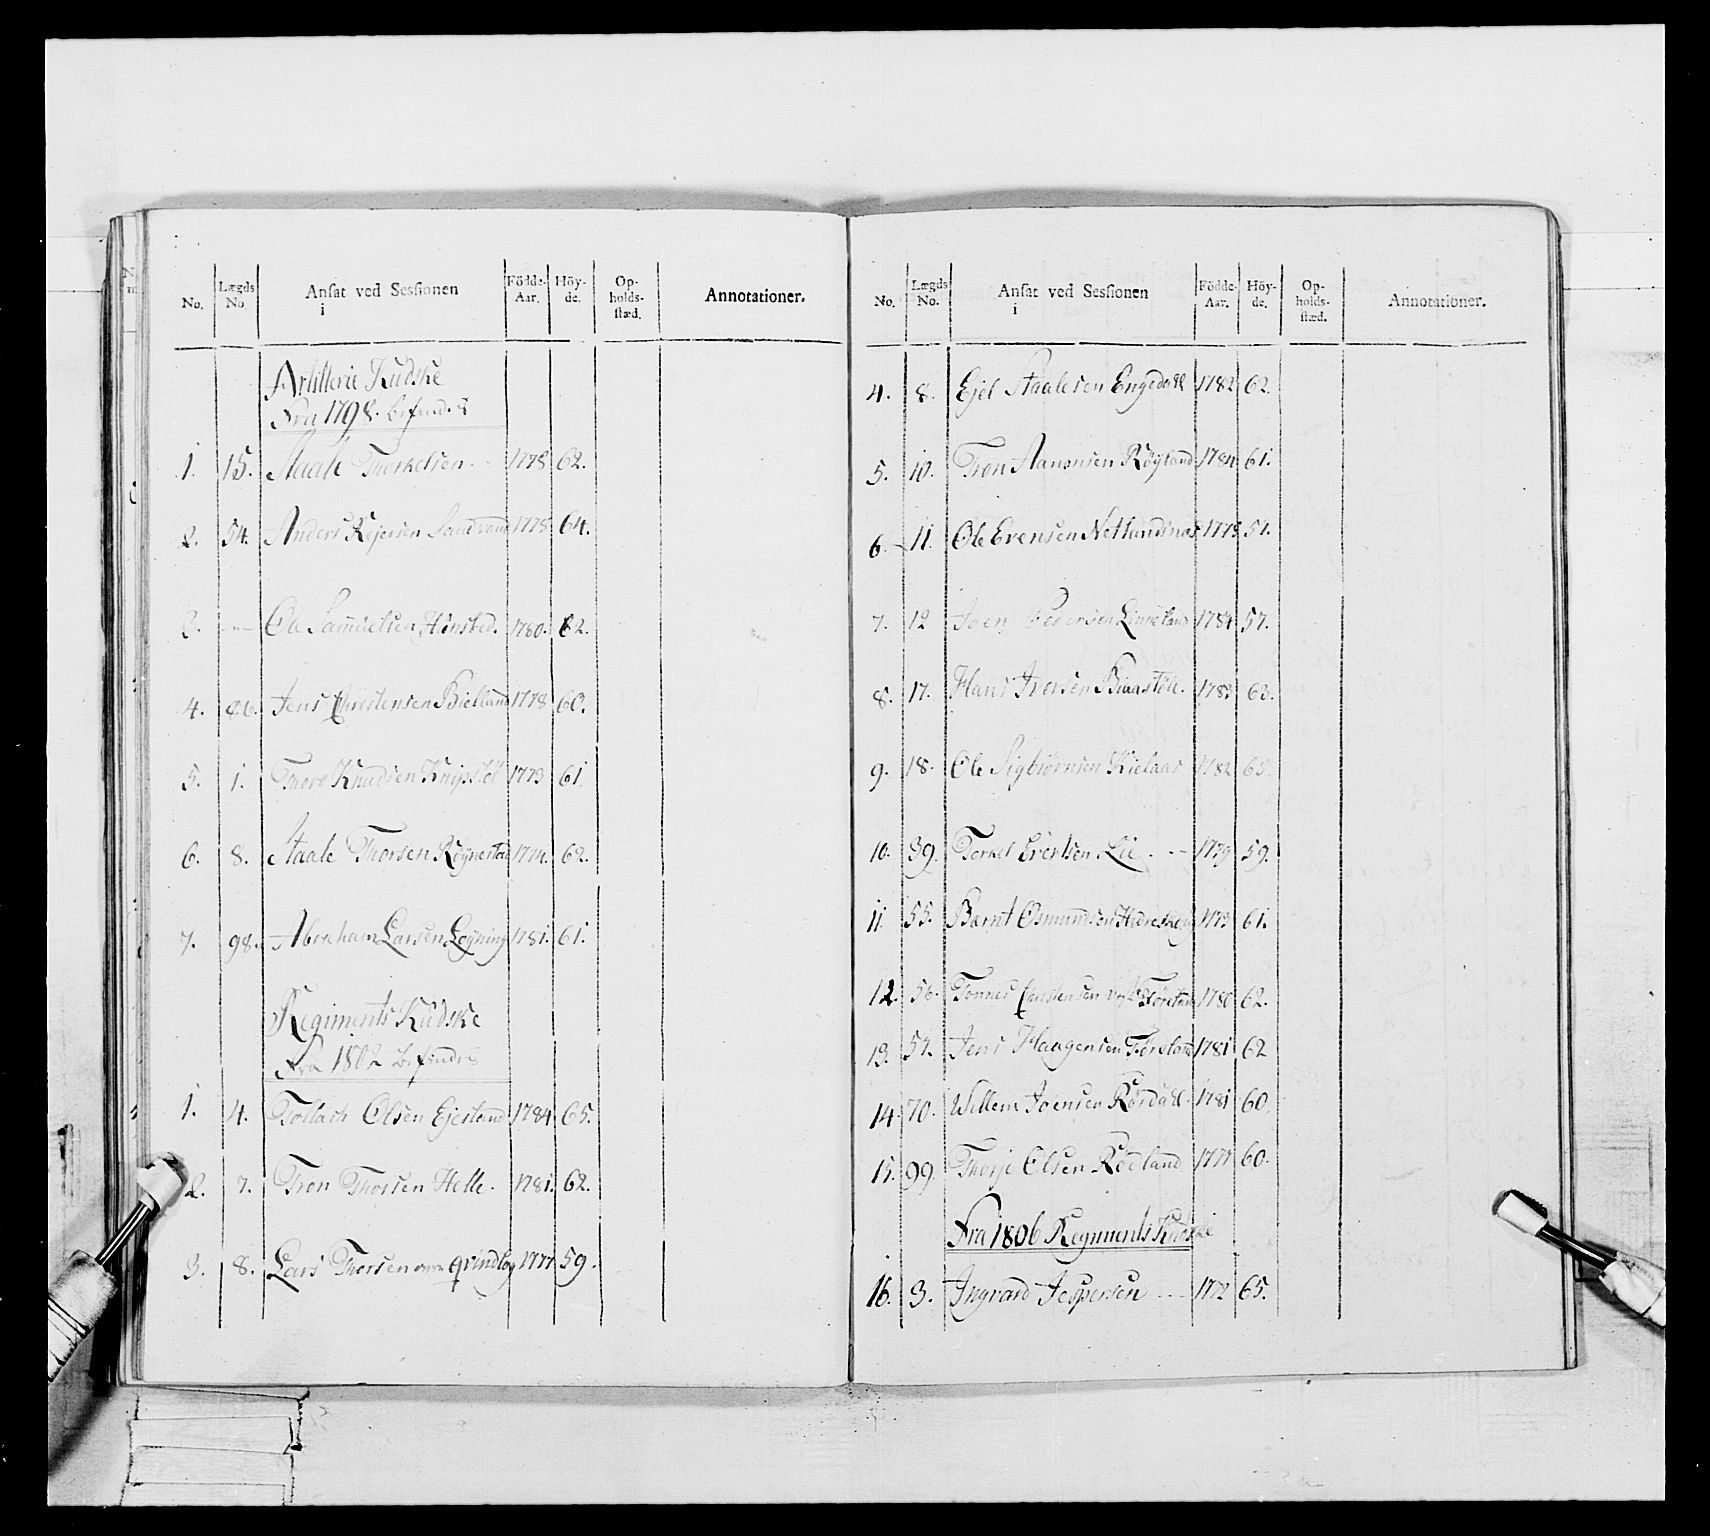 No. Lægds No. Ansat ved Sessionen i Födde-Aar. Höy-de. Op-holds-stæd. Annotationer.
Artillerie Kudske
Fra 1798. befindes
1. 15. Staale Thorkelsen. - 1778. 62.
2. 54. Anders Rejersen Sandvand 1778. 64.
3. -"- Ole Samuelsen Hunsbed. 1780. 62.
4. 86. Jens Christensen Bielland 1778. 60.
5. 1. Thore Knudsen 1773. 61.
6. 8. Staale Thorsen Røynestad 1774. 62.
7. 98. Abraham Larsen Løyning 1781. 61.
Regiments Kudske
Fra 1802 befindes
1. 4. Tollach Olsen Ejesland 1784. 65.
2. 7. Tron Thorsen Helle. 1781. 62.
3. 8. Lars Thorsen 1777. 59.
No. Lægds No. Ansat ved Sessionen i Födde-Aar. Höy-de. Op-holds-stæd. Annotationer.
4. 8. Ejel Staalesen Engedahl 1782. 62.
5. 10. Tron Aanonsen Røyland 1784. 61.
6. 11. Ole Evensen Netlandsnas 1773. 57.
7. 12 Joen Pedersen 1784. 57.
8. 17. Hans Iversen 1783. 63.
9. 18. Ole Sigbiørnsen Kielaas 1782. 65.
10. 39. Terkel Evertsen Lie. - 1779. 59.
11. 55. Barnt Osmundsen 1773. 61.
12. 56. Tonnes Christensen 1780. 62.
13. 57. Jens Haagensen Føreland 1781. 62
14. 70. Willem Joensen Rørdahl. 1781. 60.
15. 99. Thorje Olsen Rødland 1777. 60.
Fra 1806 Regiments Kudske
16. 3. Ingvard Jespersen - - 1772 65.